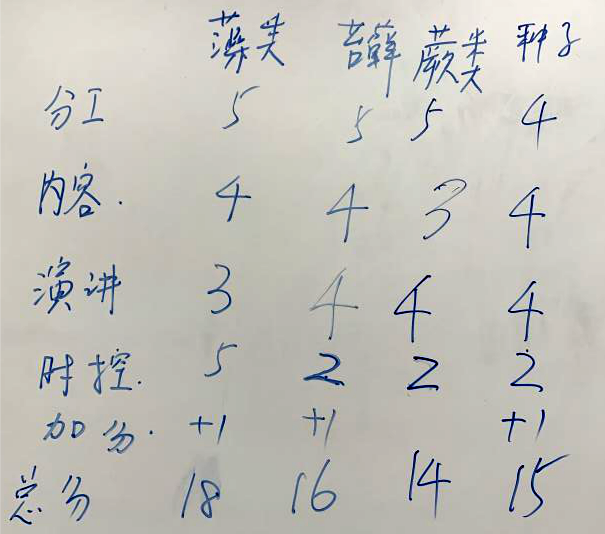 藻类 苔藓 蕨类 种子
分工 5 5 5 4
内容. 4 4 3 4
演讲 3 4 4 4
时控. 5 2 2 2
加分. +1 +1 +1
总分 18 16 14 15